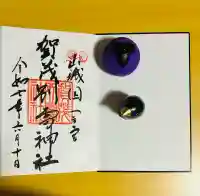 山城国一宮
賀茂別雷神社
令和七年六月十日